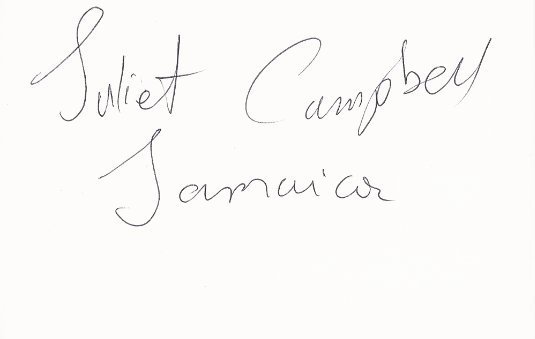 Juliet Campbell
Jamaica